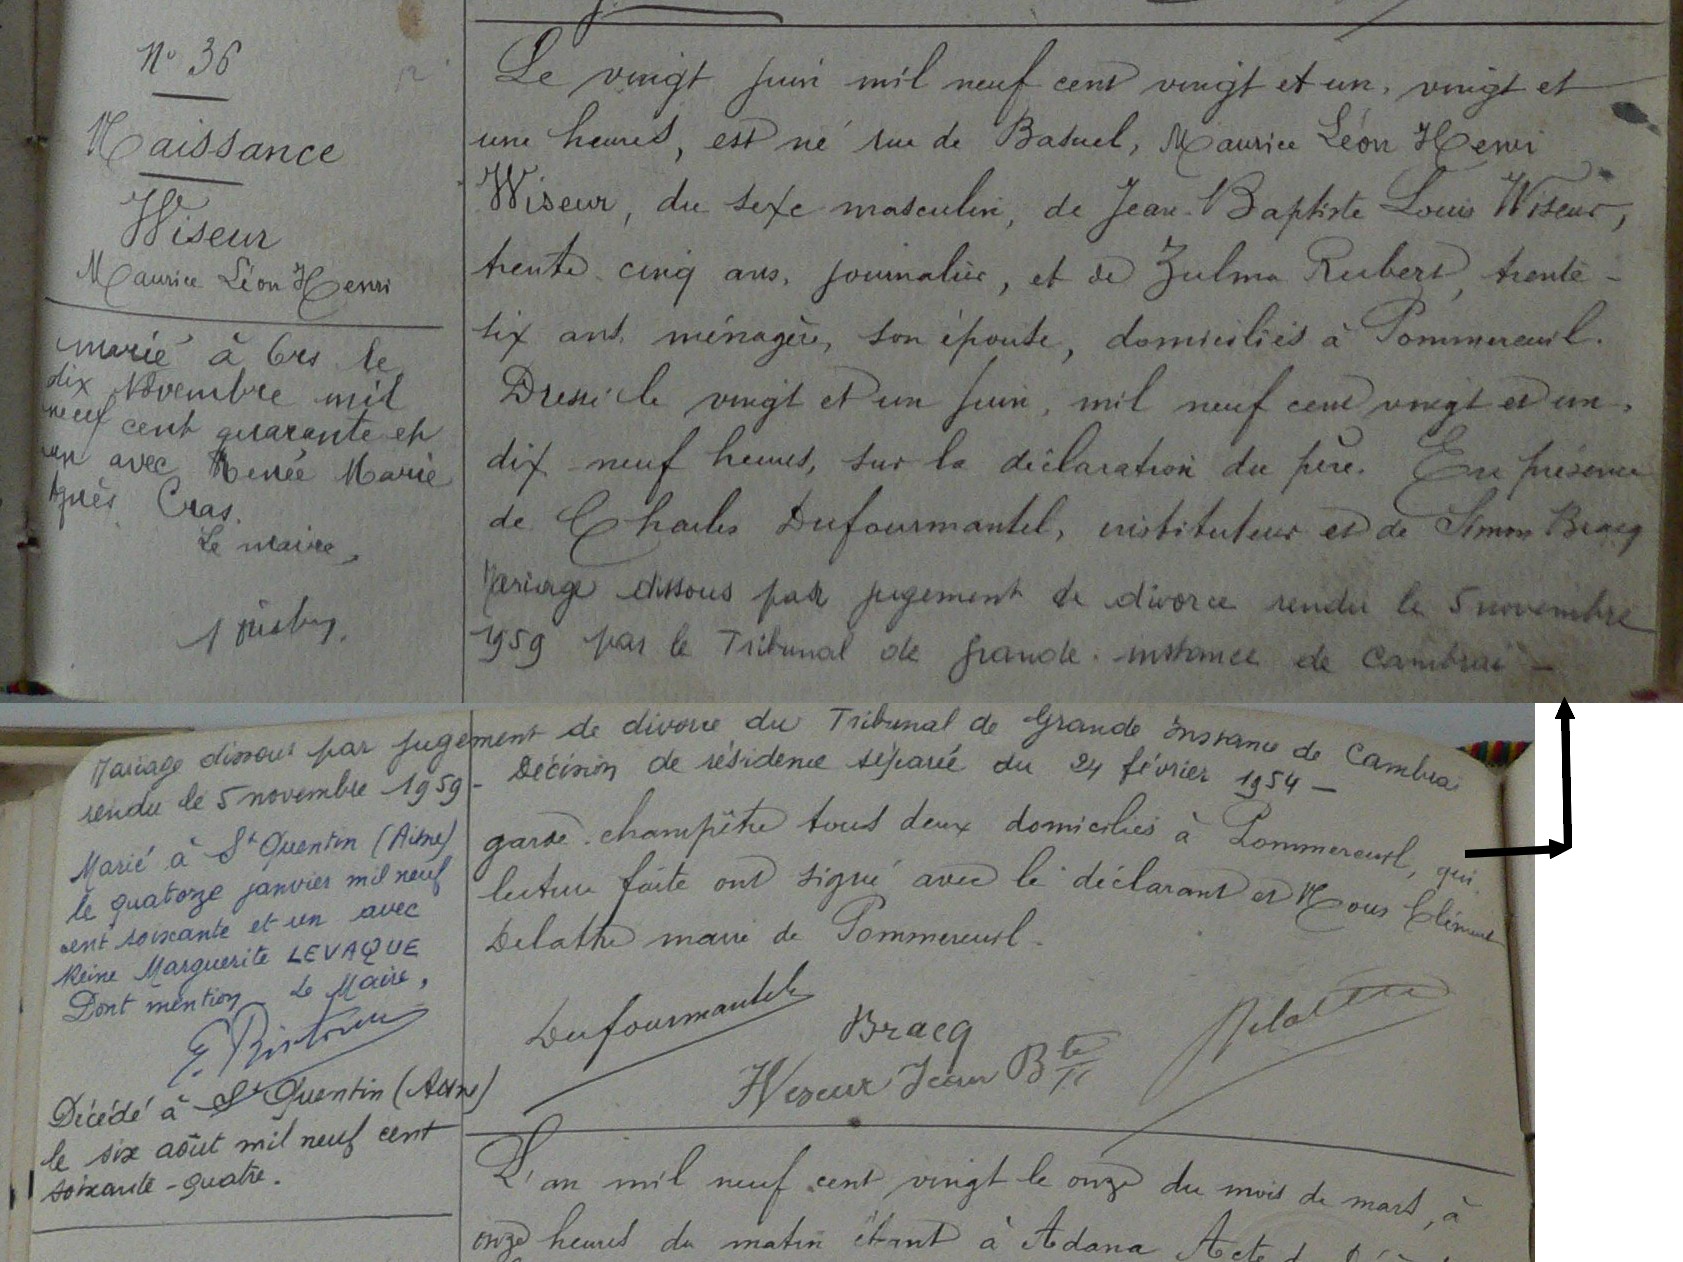 N° 36
Naissance
Wiseur
Maurice Léon Henri
marié à Ors le
dix Novembre mil
neuf cent quarante et
un avec Renée Marie
Agnès Cras.
Le maire,
Le vingt juin mil neuf cent vingt et un, vingt et
une heures, est né rue de Basuel, Maurice Léon Henri
Wiseur, du sexe masculin, de Jean-Baptiste Louis Wiseur,
trente cinq ans, journalier, et de Zulma Rubert, trente-
six ans, ménagère, son épouse, domiciliés à Pommereuil.
Dressé le vingt et un juin, mil neuf cent vingt et un,
dix-neuf heures, sur la déclaration du père. En présence
de Charles Dufourmantel, instituteur et de Simon Bracq
Mariage dissous par jugement de divorce rendu le 5 novembre
1959 par le Tribunal de grande instance de Cambrai -
Mariage dissous par jugement de divorce du Tribunal de Grande Instance de Cambrai
rendu le 5 novembre 1959 - Décision de résidence séparée du 24 février 1954 -
Marié à St Quentin (Aisne)
le quatorze janvier mil neuf
cent soixante et un avec
Reine Marguerite LEVAQUE
Dont mention Le Maire,
Décédé à St Quentin (Aisne)
le six août mil neuf cent
soixante-quatre.
garde-champêtre tous deux domiciliés à Pommereuil, qui,
lecture faite ont signé avec le déclarant et Nous Clément
Delattre maire de Pommereuil.
Dufourmantel
Bracq
Delattre
Wiseur Jean Bte
L'an mil neuf cent vingt le onze du mois de mars, à
onze heures du matin étant à Adana Acte de